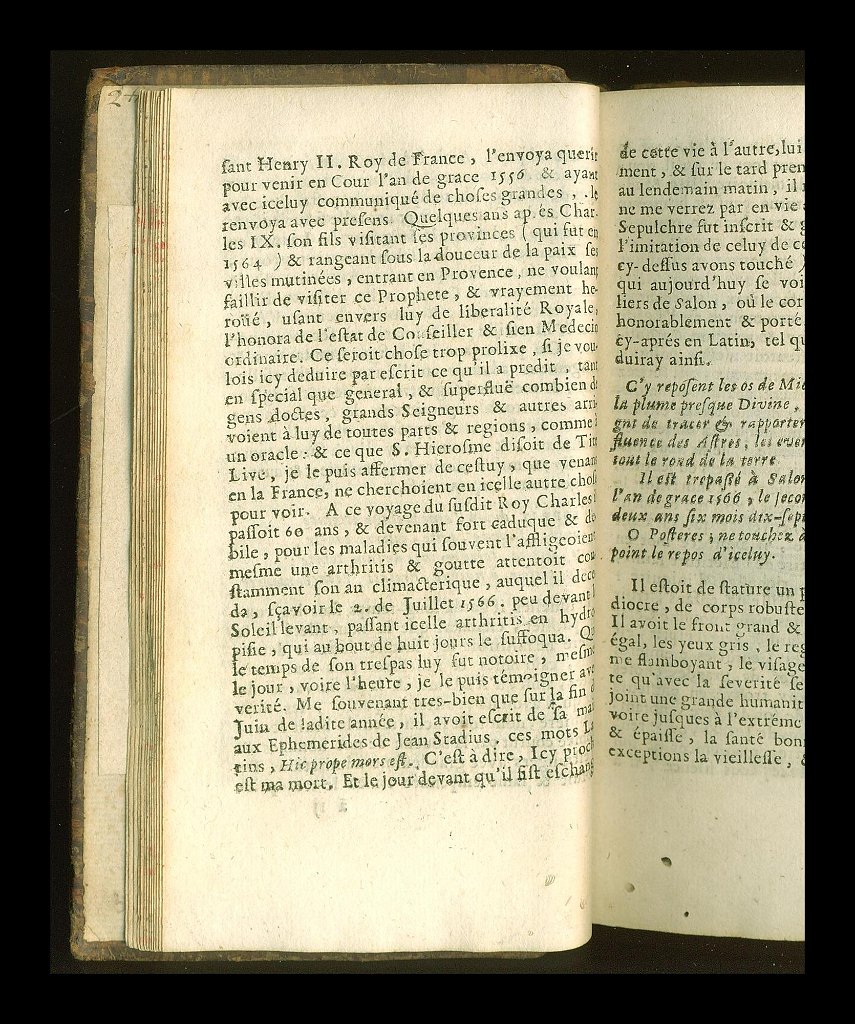 24
ſant Henry II. Roy de France, l'envoya querir
pour venir en Cour l'an de grace 1556 & ayant
avec iceluy communiqué de choſes grandes, le
renvoya avec preſens Quelques ans ap.és Char-
les IX. ſon fils viſitant ſes provinces (qui fut en
1564 ) & rangeant ſous la douceur de la paix ſes
villes mutinées, entrant en Provence, ne voulant
faillir de viſiter ce Prophete, & vrayement he-
roüé, uſant envers luy de liberalité Royale,
l'honora de l'eſtat de Conſeiller & ſien Medecin
ordinaire. Ce ſeroit choſe trop prolixe, ſi je vou
lois icy deduire par eſcrit ce qu'il a predit, tant
en ſpecial que general, & ſuperfluë combien de
gens doctes, grands Seigneurs & autres arri
voient à luy de toutes parts & regions, comme à
un oracle: & ce que S. Hieroſme diſoit de Tite
Live, je le puis affermer de ceſtuy, que venant
en la France, ne cherchoient en icelle autre choſe
pour voir. A ce voyage du ſuſdit Roy Charles
paſſoit 60 ans, & devenant fort caduque & de
bile, pour les maladies qui ſouvent l'affligeoient
meſme une arthritis & goutte attentoit con
ſtamment ſon an climacterique, auquel il dece
da, ſçavoir le 2. de Juillet 1566. peu devant le
Soleil levant, paſſant icelle arthritis en hydro
piſie, qui au bout de huit jours le ſuffoqua. Que
le temps de ſon treſpas luy fut notoire, meſme
le jour, voire l'heure, je le puis témoigner avec
verité. Me ſouvenant tres-bien que ſur la fin de
Juin de ladite année, il avoit eſcrit de ſa main
aux Ephemerides de Jean Stadius, ces mots La
tins, Hic prope mors eſt. C'eſt à dire, Icy proche
eſt ma mort. Et le jour devant qu'il fiſt eſchang
de cette vie à l'autre, lui
ment, & ſur le tard pren
au lendemain matin, il
ne me verrez par en vie
Sepulchre fut inſcrit &
l'imitation de celuy de ce
cy-deſſus avons touché )
qui aujourd'huy ſe voi
liers de Salon, où le cor
honorablement & porté
cy-aprés en Latin, tel qu
duiray ainſi.
C'y repoſent les os de Mic
la plume preſque Divine,
gnt de tracer & rapporter
fluence des Aſtres, les even
tout le rond de la terre
Il eſt trepaſſé à Salon
l'an de grace 1566, le ſecon
deux ans ſix mois dix-ſept
O Poſteres, ne touchez à
point le repos d'iceluy.
Il eſtoit de ſtature un p
diocre, de corps robuſte
Il avoit le front grand &
égal, les yeux gris, le reg
me flamboyant, le viſage
te qu'avec la ſeverité ſe
joint une grande humanit
voire juſques à l'extréme
& épaiſſe, la ſanté bon
exceptions la vieilleſſe,